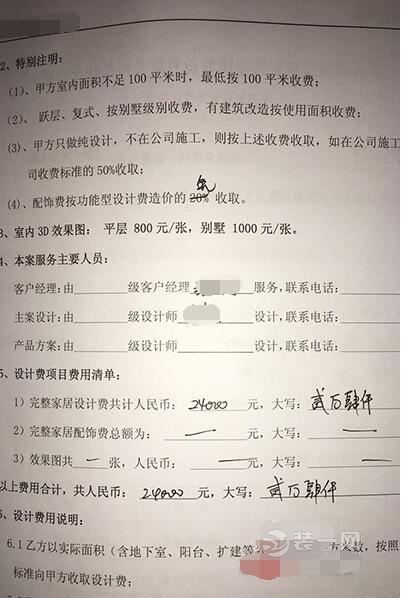 2、特别注明：
(1)、甲方室内面积不足 100 平米时，最低按 100 平米收费；
(2)、 跃层、复式、按别墅级别收费，有建筑改造按使用面积收费；
(3)、甲方只做纯设计，不在公司施工，则按上述收费收取，如在公司施工
司收费标准的 50%收取；
(4)、配饰费按功能型设计费造价的 20% 收取。
3、室内 3D 效果图： 平层 800 元/张，别墅 1000 元/张。
4、本案服务主要人员：
客户经理：由______级客户经理______服务，联系电话：______
主案设计：由______级设计师______设计，联系电话：______
产品方案：由______级设计师______设计，联系电话：______
5、设计费项目费用清单：
1）完整家居设计费共计人民币： 24000 元，大写： 贰万肆仟
2）完整家居配饰费总额为： — 元，大写： —
3）效果图共 — 张，人民币： — 元，大写： —
以上费用合计，共人民币： 24000 元，大写： 贰万肆仟
6、设计费用说明：
6.1 乙方以实际面积（含地下室、阳台、扩建等公
方米数，按照
标准向甲方收取设计费；
装一网